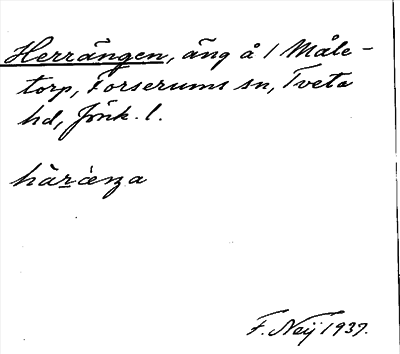 Herrängen, äng å 1 Måle-
torp, Forserums sn, Tveta
hd, Jönk. l.
F. Neij 1937.